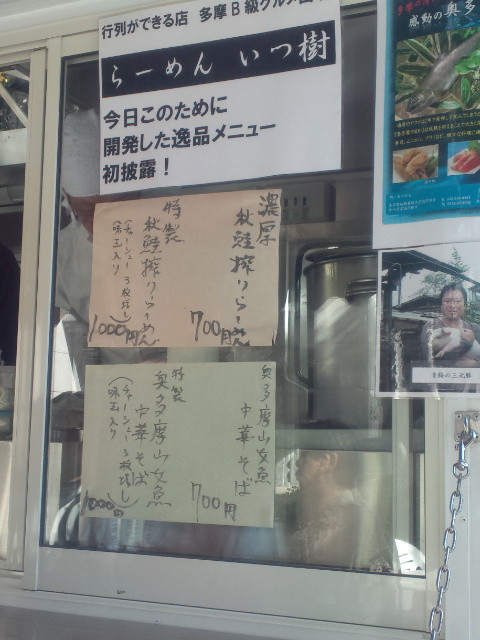 行列ができる店 多摩B級グルメ
らーめん いつ樹
今日このために
開発した逸品メニュー
初披露！
濃厚
秋鮭搾りらーめん
700円
特製
秋鮭搾りらーめん
（チャーシュー3枚増し
味玉入り）
1000円
奥多摩山女魚
中華そば
700円
特製
奥多摩山女魚
中華そば
（チャーシュー3枚増し
味玉入り）
1000円
感動の奥多
青梅の三元豚